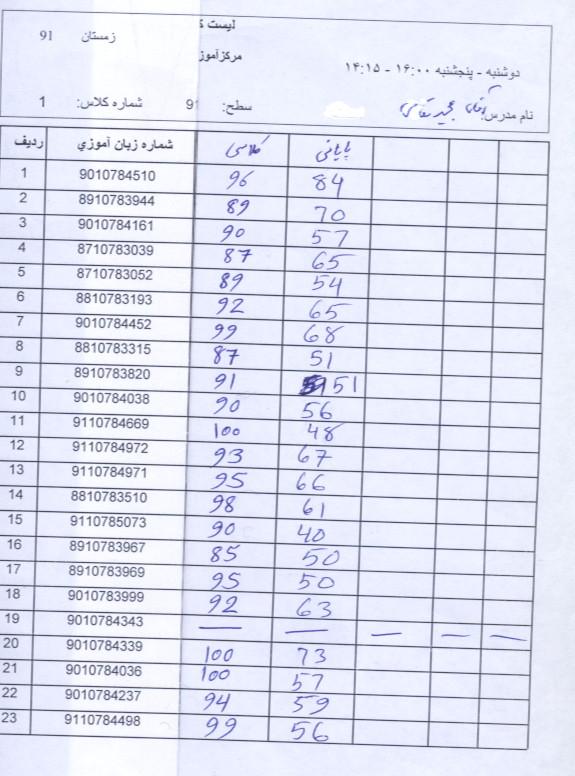 لیست
زمستان 91
مرکزآموز
دوشنبه - پنجشنبه ۱۶:۰۰ - ۱۴:۱۵
نام مدرس: آقای مجید
سطح: 91 شماره کلاس: 1
ردیف شماره زبان آموزي کلاسی پایانی
1 9010784510 96 84
2 8910783944 89 70
3 9010784161 90 57
4 8710783039 87 65
5 8710783052 89 54
6 8810783193 92 65
7 9010784452 99 68
8 8810783315 87 51
9 8910783820 91 51
10 9010784038 90 56
11 9110784669 100 48
12 9110784972 93 67
13 9110784971 95 66
14 8810783510 98 61
15 9110785073 90 40
16 8910783967 85 50
17 8910783969 95 50
18 9010783999 92 63
19 9010784343 — — — — —
20 9010784339 100 73
21 9010784036 100 57
22 9010784237 94 59
23 9110784498 99 56